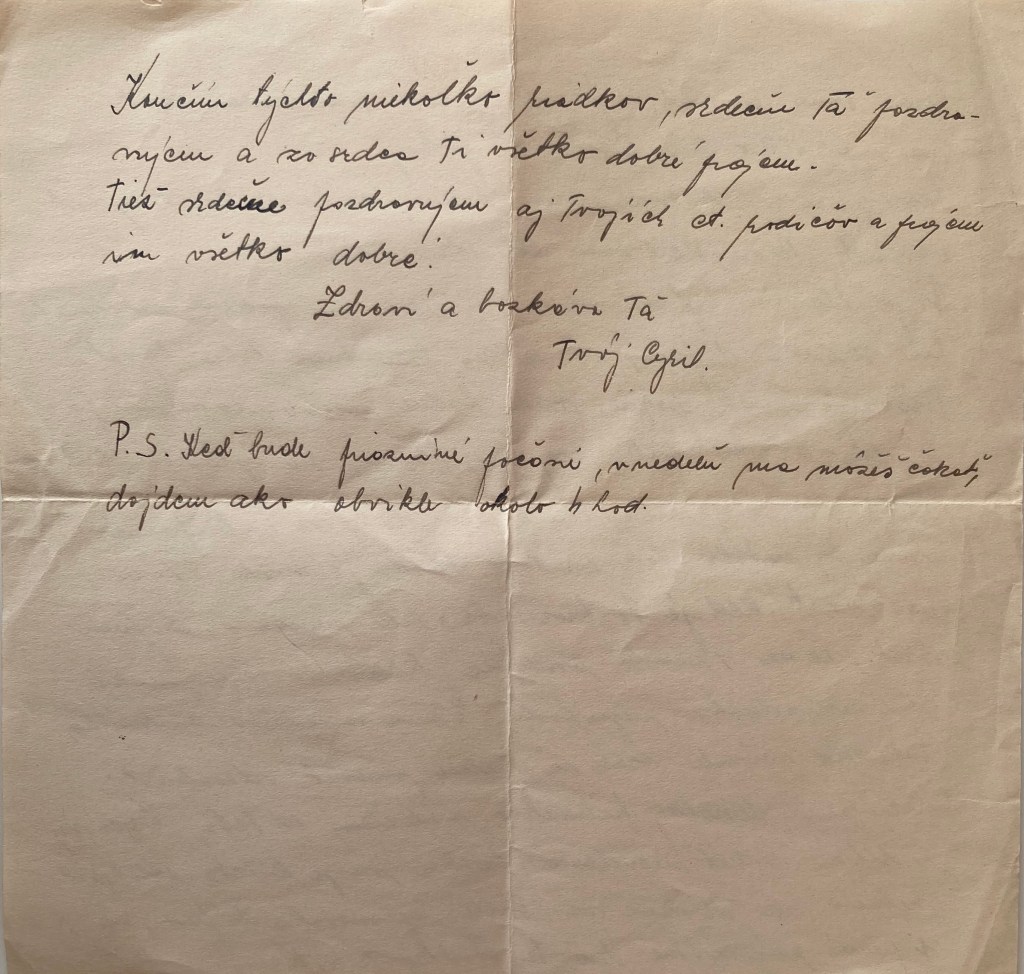 Končím týchto niekoľko riadkov, srdečne Ťa pozdra-
vujem a zo srdca Ti všetko dobré prajem.
Tiež srdečne pozdravujem aj Tvojich ct. rodičov a prajem
im všetko dobré!
Zdraví a bozkáva Ťa
Tvoj Cyril.
P.S. Keď bude priaznivé počasie, v nedeľu ma môžeš čakať,
dojdem ako obvikle okolo 4 hod.